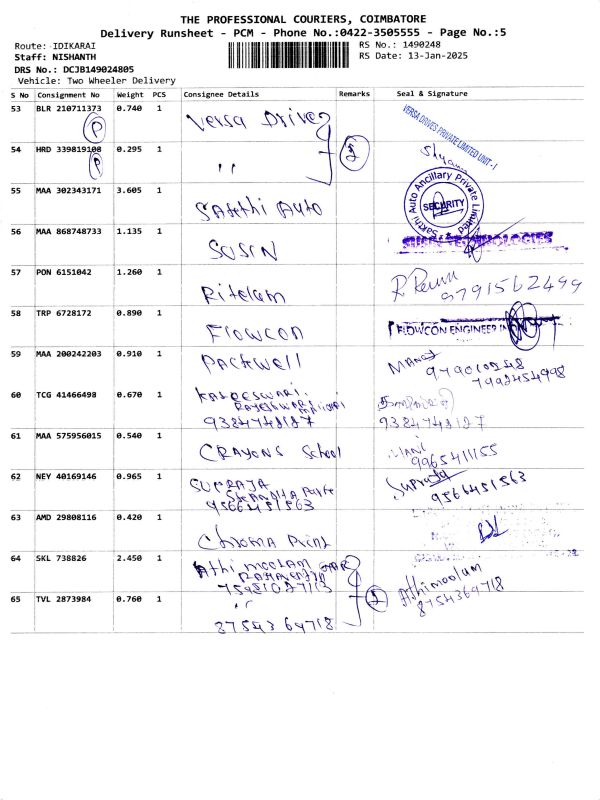 THE PROFESSIONAL COURIERS, COIMBATORE
Delivery Runsheet - PCM - Phone No.:0422-3505555 - Page No.:5
Route: IDIKARAI
RS No.: 1490248
Staff: NISHANTH
RS Date: 13-Jan-2025
DRS No.: DCJB149024805
Vehicle: Two Wheeler Delivery
S No Consignment No Weight PCS Consignee Details Remarks Seal & Signature
53 BLR 210711373 0.740 1 Versa Drives VERSA DRIVES PRIVATE LIMITED UNIT-I
P
54 HRD 339819108 0.295 1 " 2 Shyam
P
55 MAA 302343171 3.605 1 Sakthi Auto Sakthi Auto Ancillary Private Limited SECURITY
56 MAA 868748733 1.135 1 SUSIN
57 PON 6151042 1.260 1 Ritelam 9791562499
58 TRP 6728172 0.890 1 Flowcon FLOWCON ENGINEER
59 MAA 200242203 0.910 1 Packwell
7992454998
60 TCG 41466498 0.670 1
9384748127 9384748127
61 MAA 575956015 0.540 1 CRAYONS School MANI
9965411155
62 NEY 40169146 0.965 1 SUPRAJA Supraja
9566451563 9566451563
63 AMD 29808116 0.420 1 Chroma Print
64 SKL 738826 2.450 1 Athimoolam
65 TVL 2873984 0.760 1 " 2 Athimoolam
8754369718 8754369718